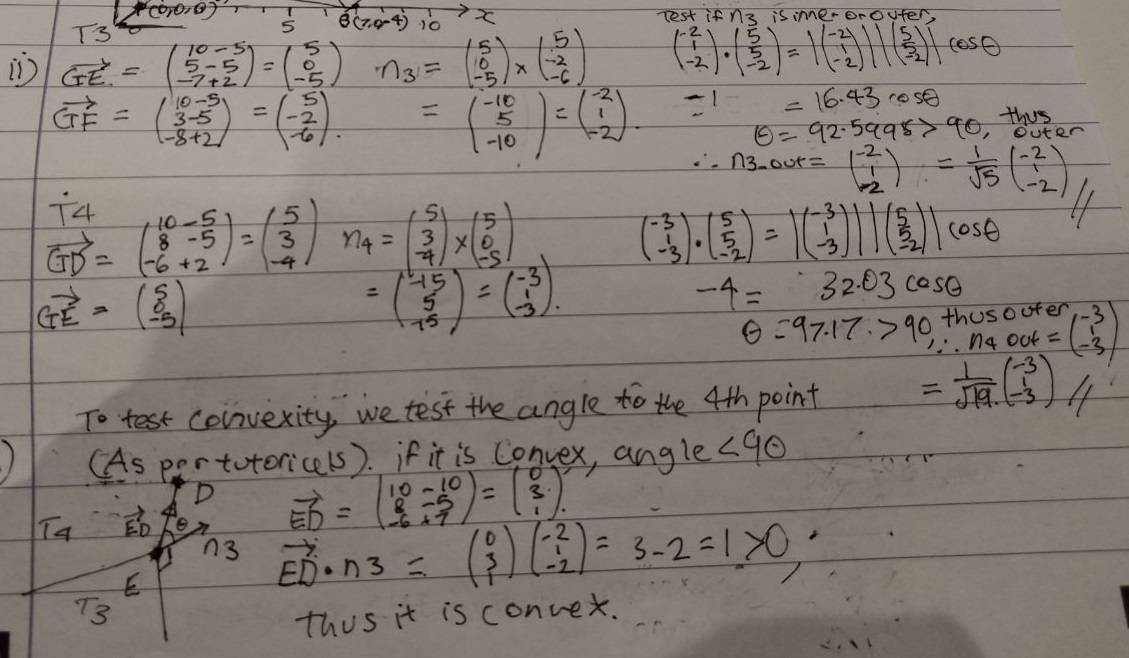 (0,0,0) 5 B(7,0,-4) 10 x
T3
ii) GE = (10-5, 5-5, -7+2) = (5, 0, -5) n3 = (5, 0, -5) × (5, -2, -6)
GF = (10-5, 3-5, -8+2) = (5, -2, -6). = (-10, 5, -10) = (-2, 1, -2).
Test if n3 is inner or outer,
(-2, 1, -2) · (5, 5, -2) = |(-2, 1, -2)| |(5, 5, -2)| cosθ
-1 = 16.43 cosθ
θ = 92.5998 > 90, thus outer
∴ n3_out = (-2, 1, -2) = 1/√5 (-2, 1, -2) //
T4
GD = (10-5, 8-5, -6+2) = (5, 3, -4) n4 = (5, 3, -4) × (5, 0, -5)
GE = (5, 0, -5) = (-15, 5, -15) = (-3, 1, -3).
(-3, 1, -3) · (5, 5, -2) = |(-3, 1, -3)| |(5, 5, -2)| cosθ
-4 = 32.03 cosθ
θ = 97.17 > 90, thus outer
∴ n4 out = (-3, 1, -3)
= 1/√19 (-3, 1, -3) //
To test convexity, we test the angle to the 4th point
(As per tutorials). if it is convex, angle < 90
D
T4 ED θ n3
E
T3
ED = (10-10, 8-5, -6+7) = (0, 3, 1).
ED · n3 = (0, 3, 1) (-2, 1, -2) = 3-2 = 1 > 0,
thus it is convex.